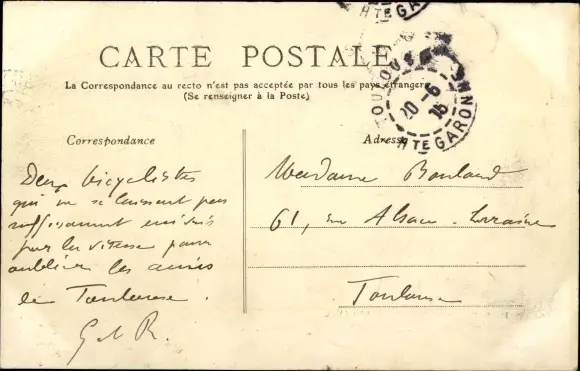 HTE GARON
CARTE POSTALE
La Correspondance au recto n'est pas acceptée par tous les pays étrangers
(Se renseigner à la Poste)
TOULOUSE
20-6
HTE GARONNE
Correspondance
Adresse
Deux bicyclistes
qui ne se laissent pas
suffisamment
par la vitesse pour
oublier les amis
de Toulouse.
G et R.
Madame
61, rue Alsace-Lorraine
Toulouse